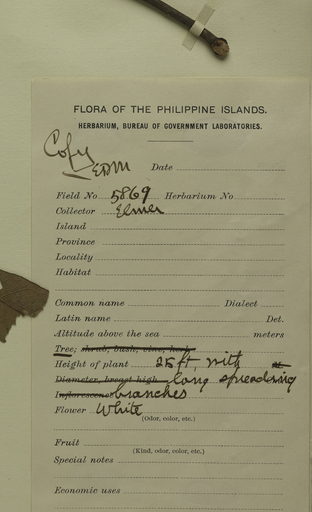 FLORA OF THE PHILIPPINE ISLANDS.
HERBARIUM, BUREAU OF GOVERNMENT LABORATORIES.
Copy
EDM
Date
Field No 5869 Herbarium No
Collector Elmer
Island
Province
Locality
Habitat
Common name Dialect
Latin name Det.
Altitude above the sea meters
Tree; shrub, bush, vine, herb
Height of plant 25 ft with
Diameter, breast high long spreading
Inflorescence branches
Flower White
(Odor, color, etc.)
Fruit
(Kind, odor, color, etc.)
Special notes
Economic uses